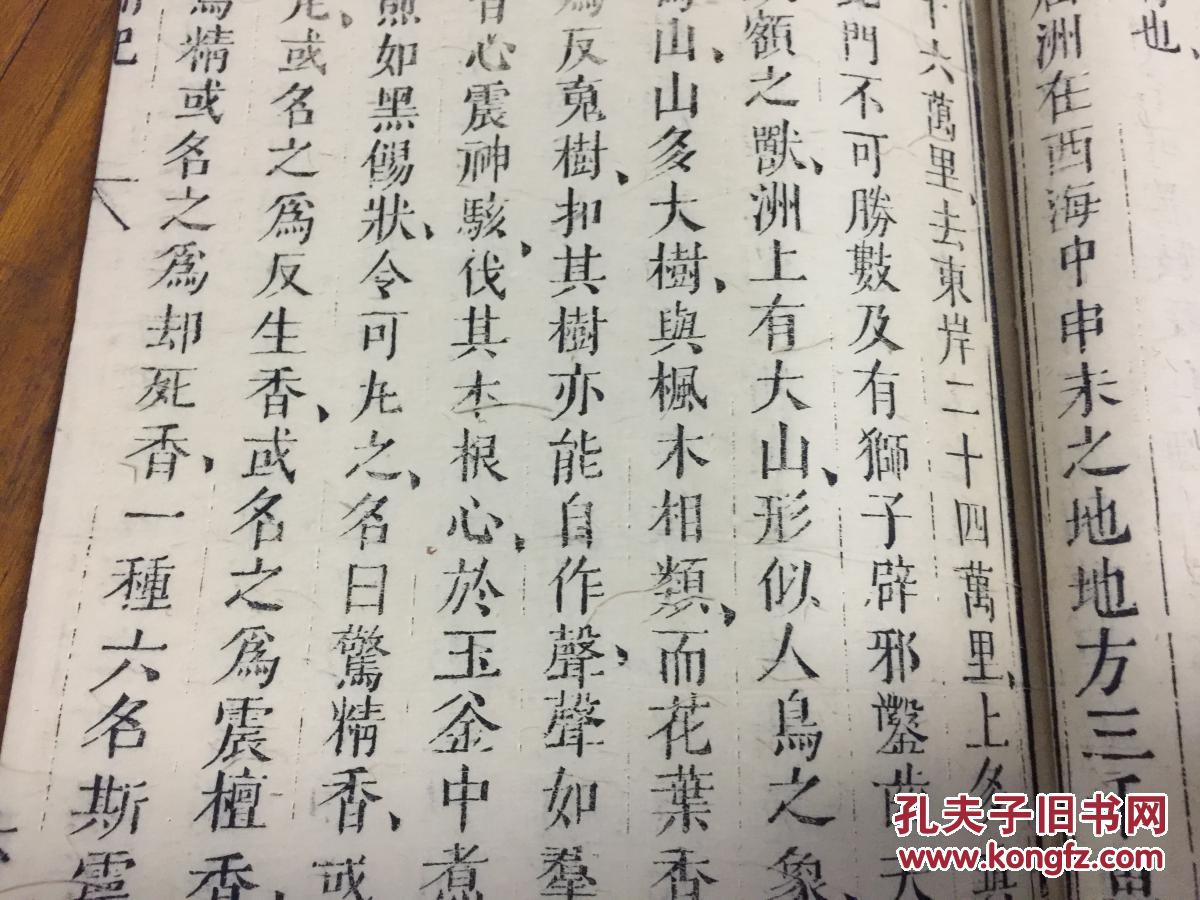 也、
洲在西海中申未之地地方三千
十六萬里、去東岸二十四萬里、上多真
門不可勝數及有獅子辟邪鑿齒天
額之獸、洲上有大山、形似人鳥之象、
山、山多大樹、與楓木相類、而花葉香
爲反䰟樹、扣其樹亦能自作聲、聲如羣
者心震神駭、伐其本根心、於玉釜中煮
煎如黑餳狀、令可丸之、名曰驚精香、或
丸、或名之爲反生香、或名之爲震檀香、
精或名之爲却死香、一種六名斯靈
記
六
孔夫子旧书网
www.kongfz.com